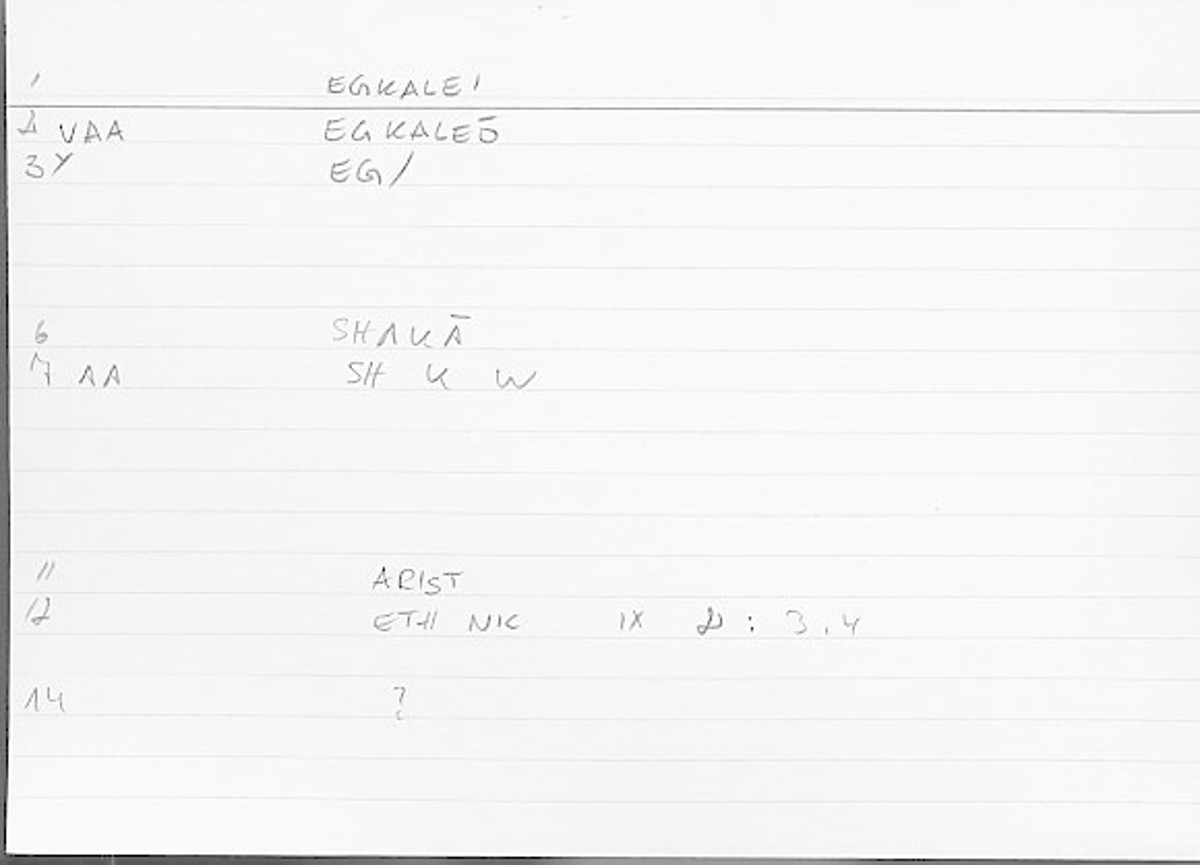 1 EGKALEI
2 VAA EGKALEŌ
3 Y EG/
6 SHAKĀ
7 AA SH K W
11 ARIST
12 ETH NIC IX 2 : 3.4
14 ?